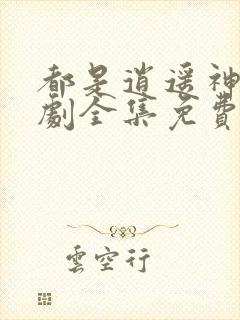 都是逍遥神
劇全集免費
雲空行